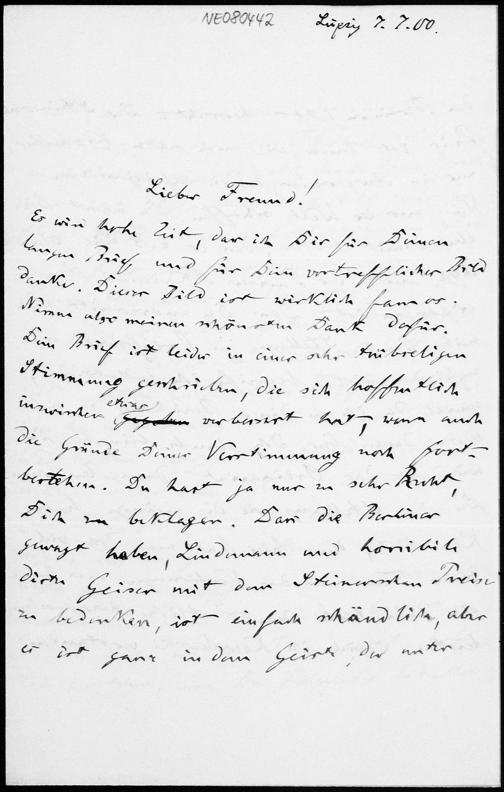 NE080442
Leipzig 7.7.00.
Lieber Freund!
Es wird hohe Zeit, dass ich Dir für Deinen
langen Brief und für Dein vortreffliches Bild
danke. Dieses Bild ist wirklich famos.
Nimm also meinen schönsten Dank dafür.
Dein Brief ist leider in einer sehr trübseligen
Stimmung geschrieben, die sich hoffentlich
inzwischen etwas verbessert hat, wenn auch
die Gründe Deiner Verstimmung noch fort-
bestehen. Du hast ja nur zu sehr Recht,
Dich zu beklagen. Dass die Berliner
gewagt haben, Lindemann und horribile
dictu Geiser mit dem Steinerschen Preise
zu bedenken, ist einfach schändlich, aber
es ist ganz in dem Geiste, der unter